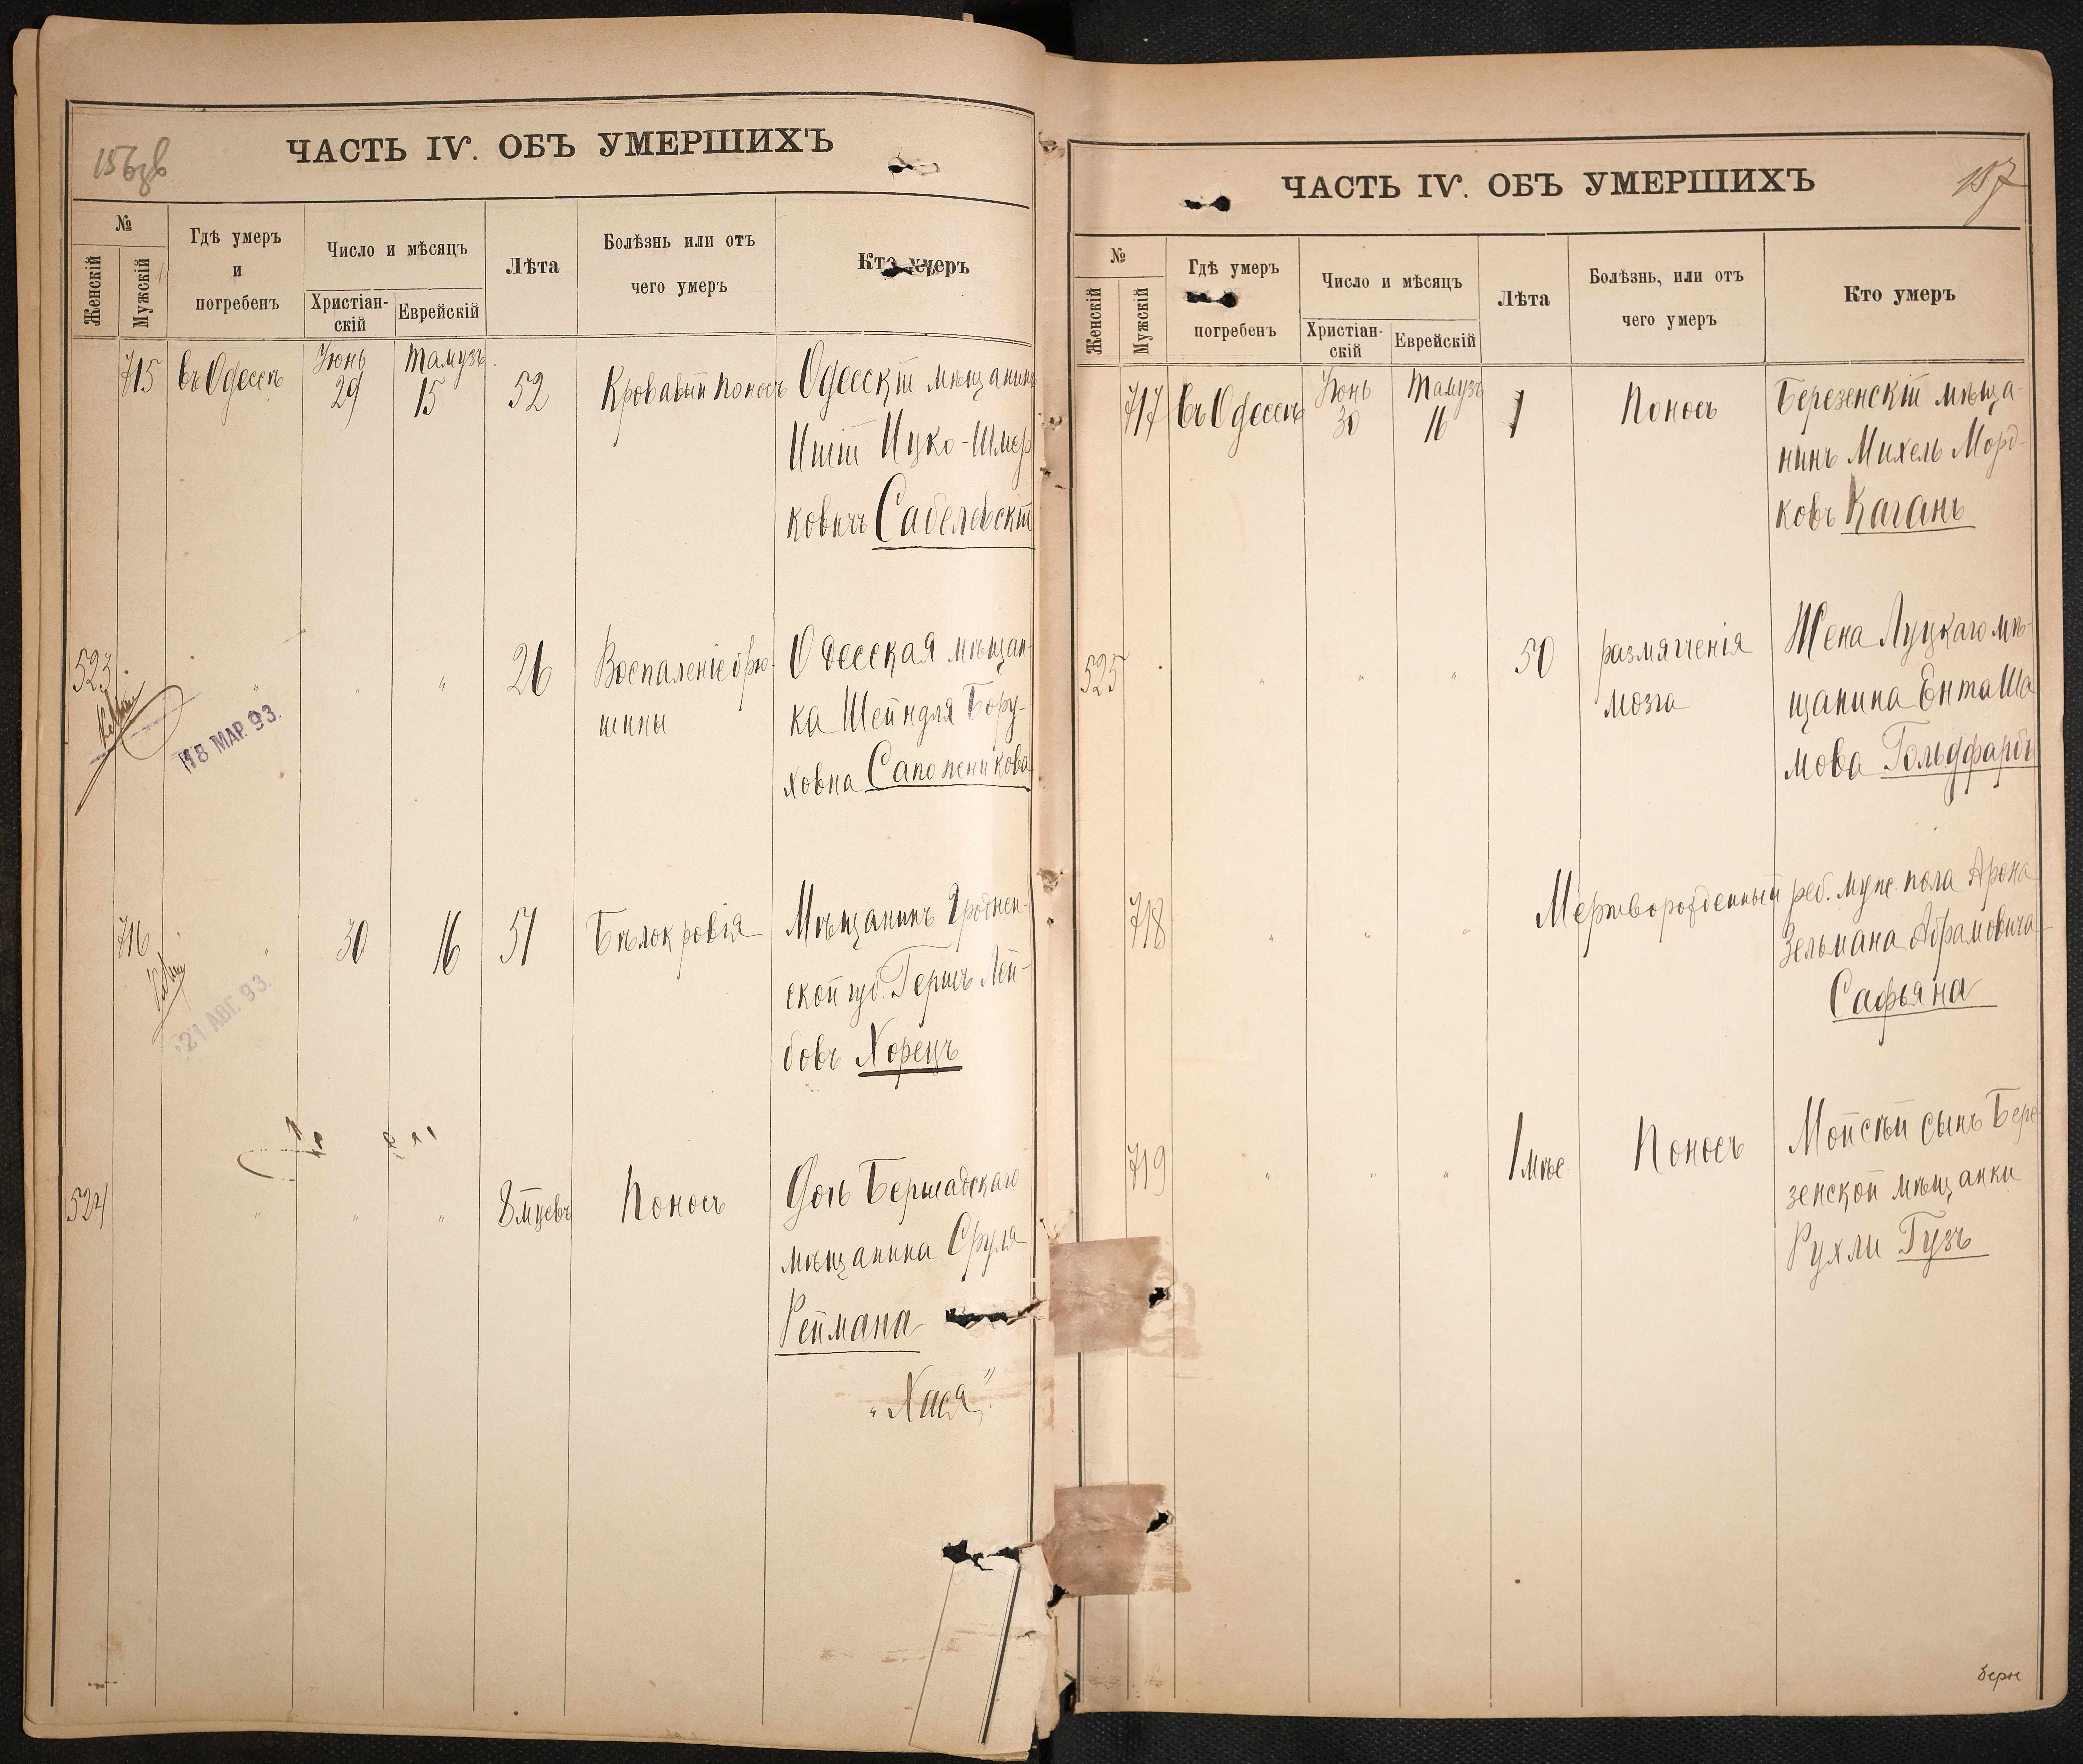 156об
ЧАСТЬ IV. ОБЪ УМЕРШИХЪ
№
Женскій
Мужскій
Гдѣ умеръ
и
погребенъ
Число и мѣсяцъ
Христіан-
скій
Еврейскій
Лѣта
Болѣзнь или отъ
чего умеръ
Кто умеръ
715 въ Одессѣ Іюнь 29 Тамузъ 15 52 Кровавый поносъ Одесскій мѣщанинъ
Ицко-Шмер
ковичъ Сабелевскій
523 " " " 26 Воспаленіе брю- Одесская мѣщан-
шины ка Шейндля Бору-
ховна Сапожникова
18 МАР. 93.
716 " 30 16 51 Бѣлокровія Мѣщанинъ Гроднен-
ской губ. Гершъ Лей-
бовъ Хорецъ
21 АВГ. 93.
524 " " " 8 мцевъ Поносъ Дочь Бершадскаго
мѣщанина Сруля
Реймана
"Хася"
157
ЧАСТЬ IV. ОБЪ УМЕРШИХЪ
№
Женскій
Мужскій
Гдѣ умеръ
погребенъ
Число и мѣсяцъ
Христіан-
скій
Еврейскій
Лѣта
Болѣзнь, или отъ
чего умеръ
Кто умеръ
717 въ Одессѣ Іюнь 30 Тамузъ 16 1 Поносъ Березенскій мѣща-
нинъ Михель Морд-
ковъ Каганъ
525 " " " 50 размягченія Жена Луцкаго мѣ-
мозга щанина Ента Ша
мова Гольдфарбъ
718 " " " Мертворожденный реб. муж. пола Арона
Зельмана Абрамовича
Сафьяна
719 " " " 1 мѣс. Поносъ Мойсѣй сынъ Бере
зенской мѣщанки
Рухли Гузъ